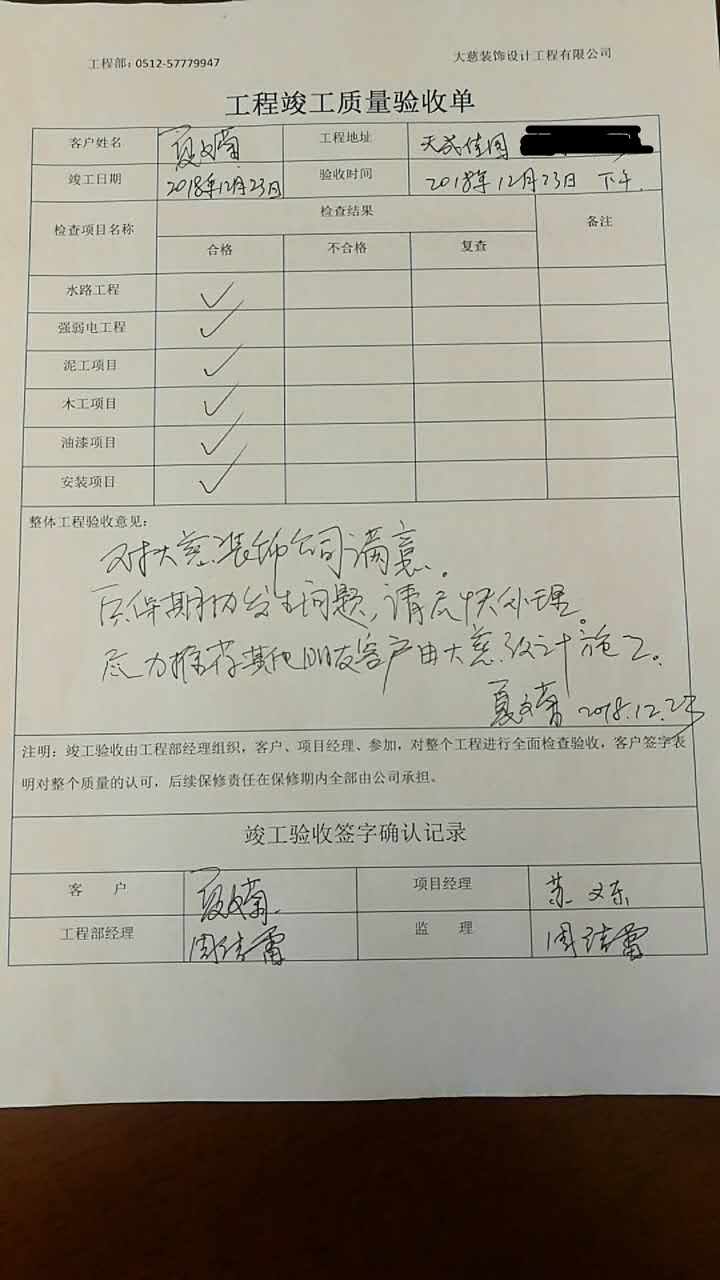 工程部：0512-57779947 大慈装饰设计工程有限公司
工程竣工质量验收单
客户姓名 夏文菊 工程地址 天成佳园
竣工日期 2018年12月23日 验收时间 2018年12月23日 下午
检查项目名称 检查结果 备注
合格 不合格 复查
水路工程 ✓
强弱电工程 ✓
泥工项目 ✓
木工项目 ✓
油漆项目 ✓
安装项目 ✓
整体工程验收意见：
对大慈装饰公司满意。
保期内发生问题，请尽快处理。
尽力推荐其他朋友客户由大慈设计施工。
夏文菊 2018.12.23
注明：竣工验收由工程部经理组织，客户、项目经理、参加，对整个工程进行全面检查验收，客户签字表
明对整个质量的认可，后续保修责任在保修期内全部由公司承担。
竣工验收签字确认记录
客 户 夏文菊 项目经理 苏文东
工程部经理 周结雷 监 理 周结雷